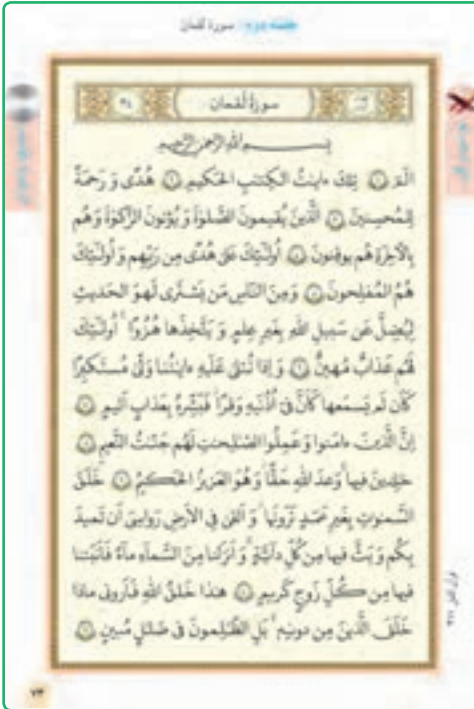 جلسه دوم سورهٔ لقمان
سورة لقمان
بسم الله الرحمن الرحيم
الٓمٓ ۝ تِلكَ ءايٰتُ الكِتٰبِ الحَكيمِ ۝ هُدًى وَ رَحمَةً
لِلمُحسِنينَ ۝ الَّذينَ يُقيمونَ الصَّلوٰةَ وَ يُؤتونَ الزَّكوٰةَ وَ هُم
بِالآخِرَةِ هُم يوقِنونَ ۝ أُولٰئِكَ عَلىٰ هُدًى مِن رَبِّهِم وَ أُولٰئِكَ
هُمُ المُفلِحونَ ۝ وَ مِنَ النّاسِ مَن يَشتَرى لَهوَ الحَديثِ
لِيُضِلَّ عَن سَبيلِ اللهِ بِغَيرِ عِلمٍ وَ يَتَّخِذَها هُزُوًا أُولٰئِكَ
لَهُم عَذابٌ مُهينٌ ۝ وَ إِذا تُتلىٰ عَلَيهِ ءايٰتُنا وَلّىٰ مُستَكبِرًا
كَأَن لَم يَسمَعها كَأَنَّ فى أُذُنَيهِ وَقرًا فَبَشِّرهُ بِعَذابٍ أَليمٍ ۝
إِنَّ الَّذينَ ءامَنوا وَ عَمِلُوا الصّٰلِحٰتِ لَهُم جَنّٰتُ النَّعيمِ ۝
خٰلِدينَ فيها وَعدَ اللهِ حَقًّا وَ هُوَ العَزيزُ الحَكيمُ ۝ خَلَقَ
السَّمٰوٰتِ بِغَيرِ عَمَدٍ تَرَونَها وَ أَلقىٰ فِى الأَرضِ رَوٰسِىَ أَن تَميدَ
بِكُم وَ بَثَّ فيها مِن كُلِّ دابَّةٍ وَ أَنزَلنا مِنَ السَّماءِ ماءً فَأَنبَتنا
فيها مِن كُلِّ زَوجٍ كَريمٍ ۝ هٰذا خَلقُ اللهِ فَأَرونى ماذا
خَلَقَ الَّذينَ مِن دونِهِ بَلِ الظّٰلِمونَ فى ضَلٰلٍ مُبينٍ ۝
٧٣